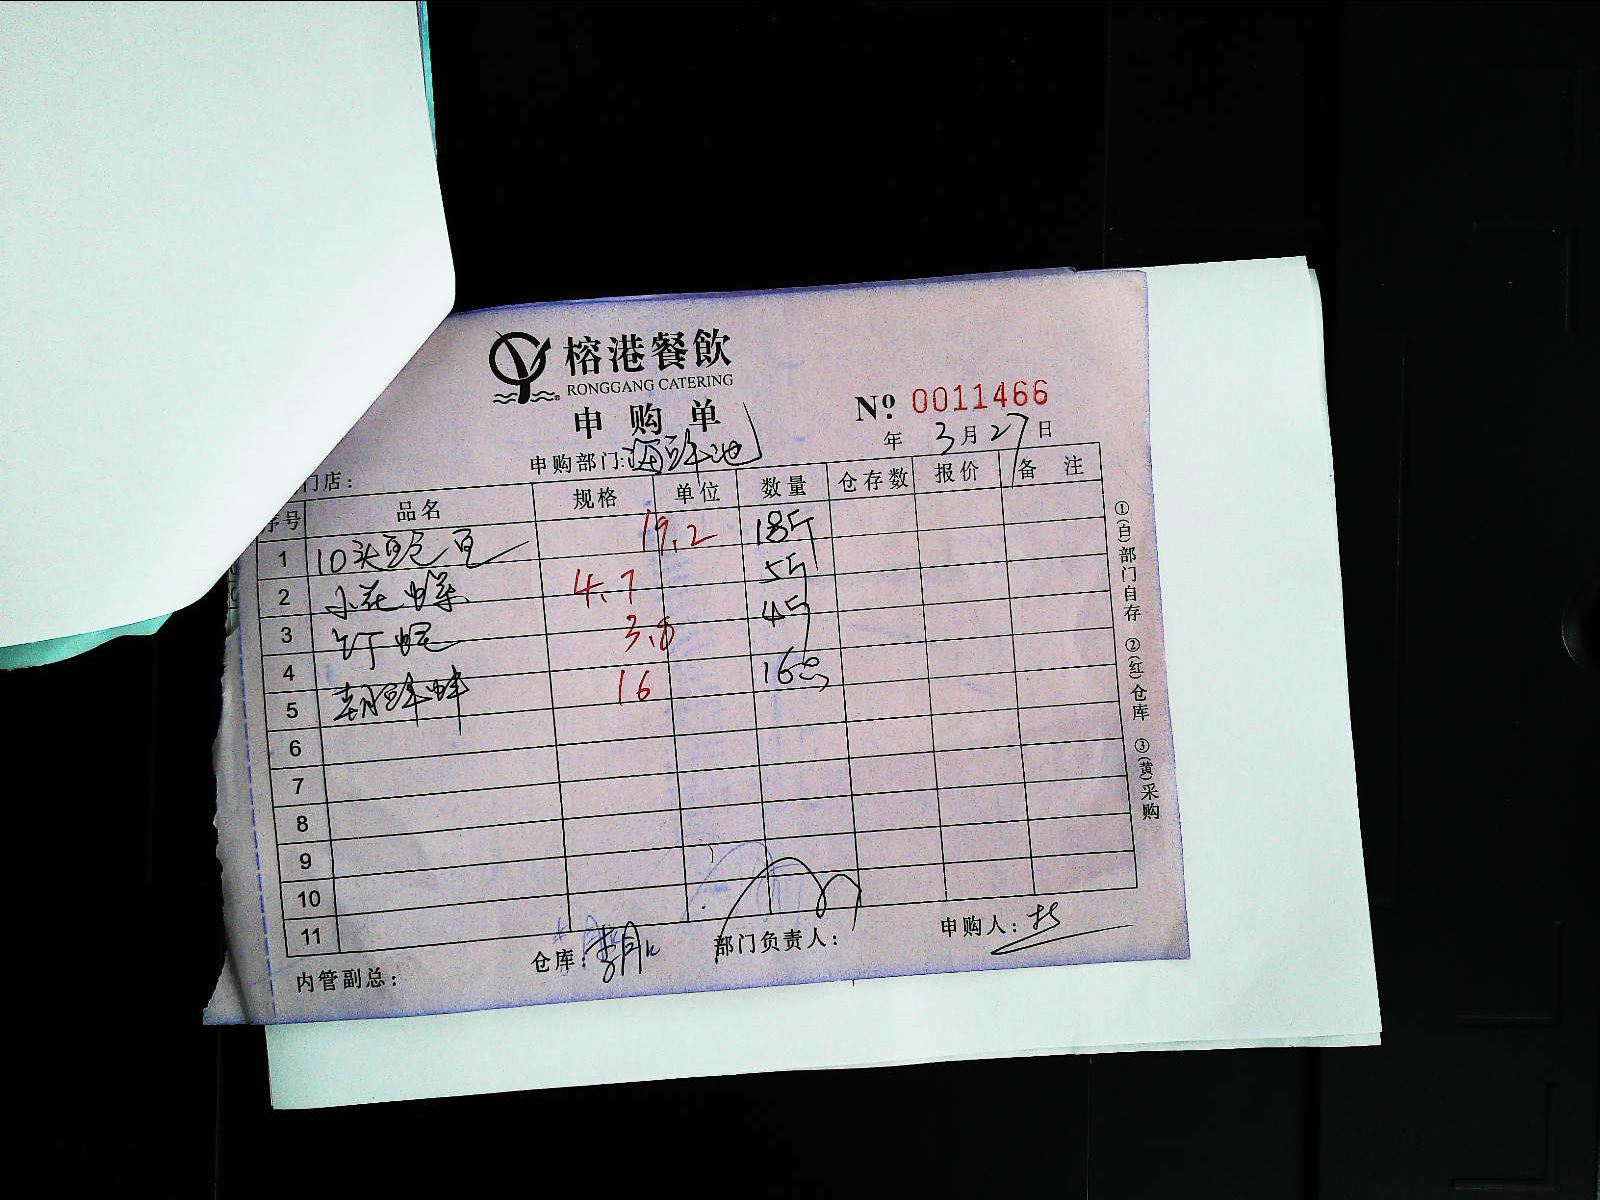 榕港餐飲
RONGGANG CATERING
申购单
Nº 0011466
年 3月27日
门店： 申购部门：海鲜池
序号 品名 规格 单位 数量 仓存数 报价 备注
1 10头鲍鱼 19.2 18斤
2 小花螺 4.7 5斤
3 3.8 4斤
4 16 16只
5
6
7
8
9
10
11
内管副总： 仓库： 部门负责人： 申购人：
①(白)部门自存 ②(红)仓库 ③(黄)采购